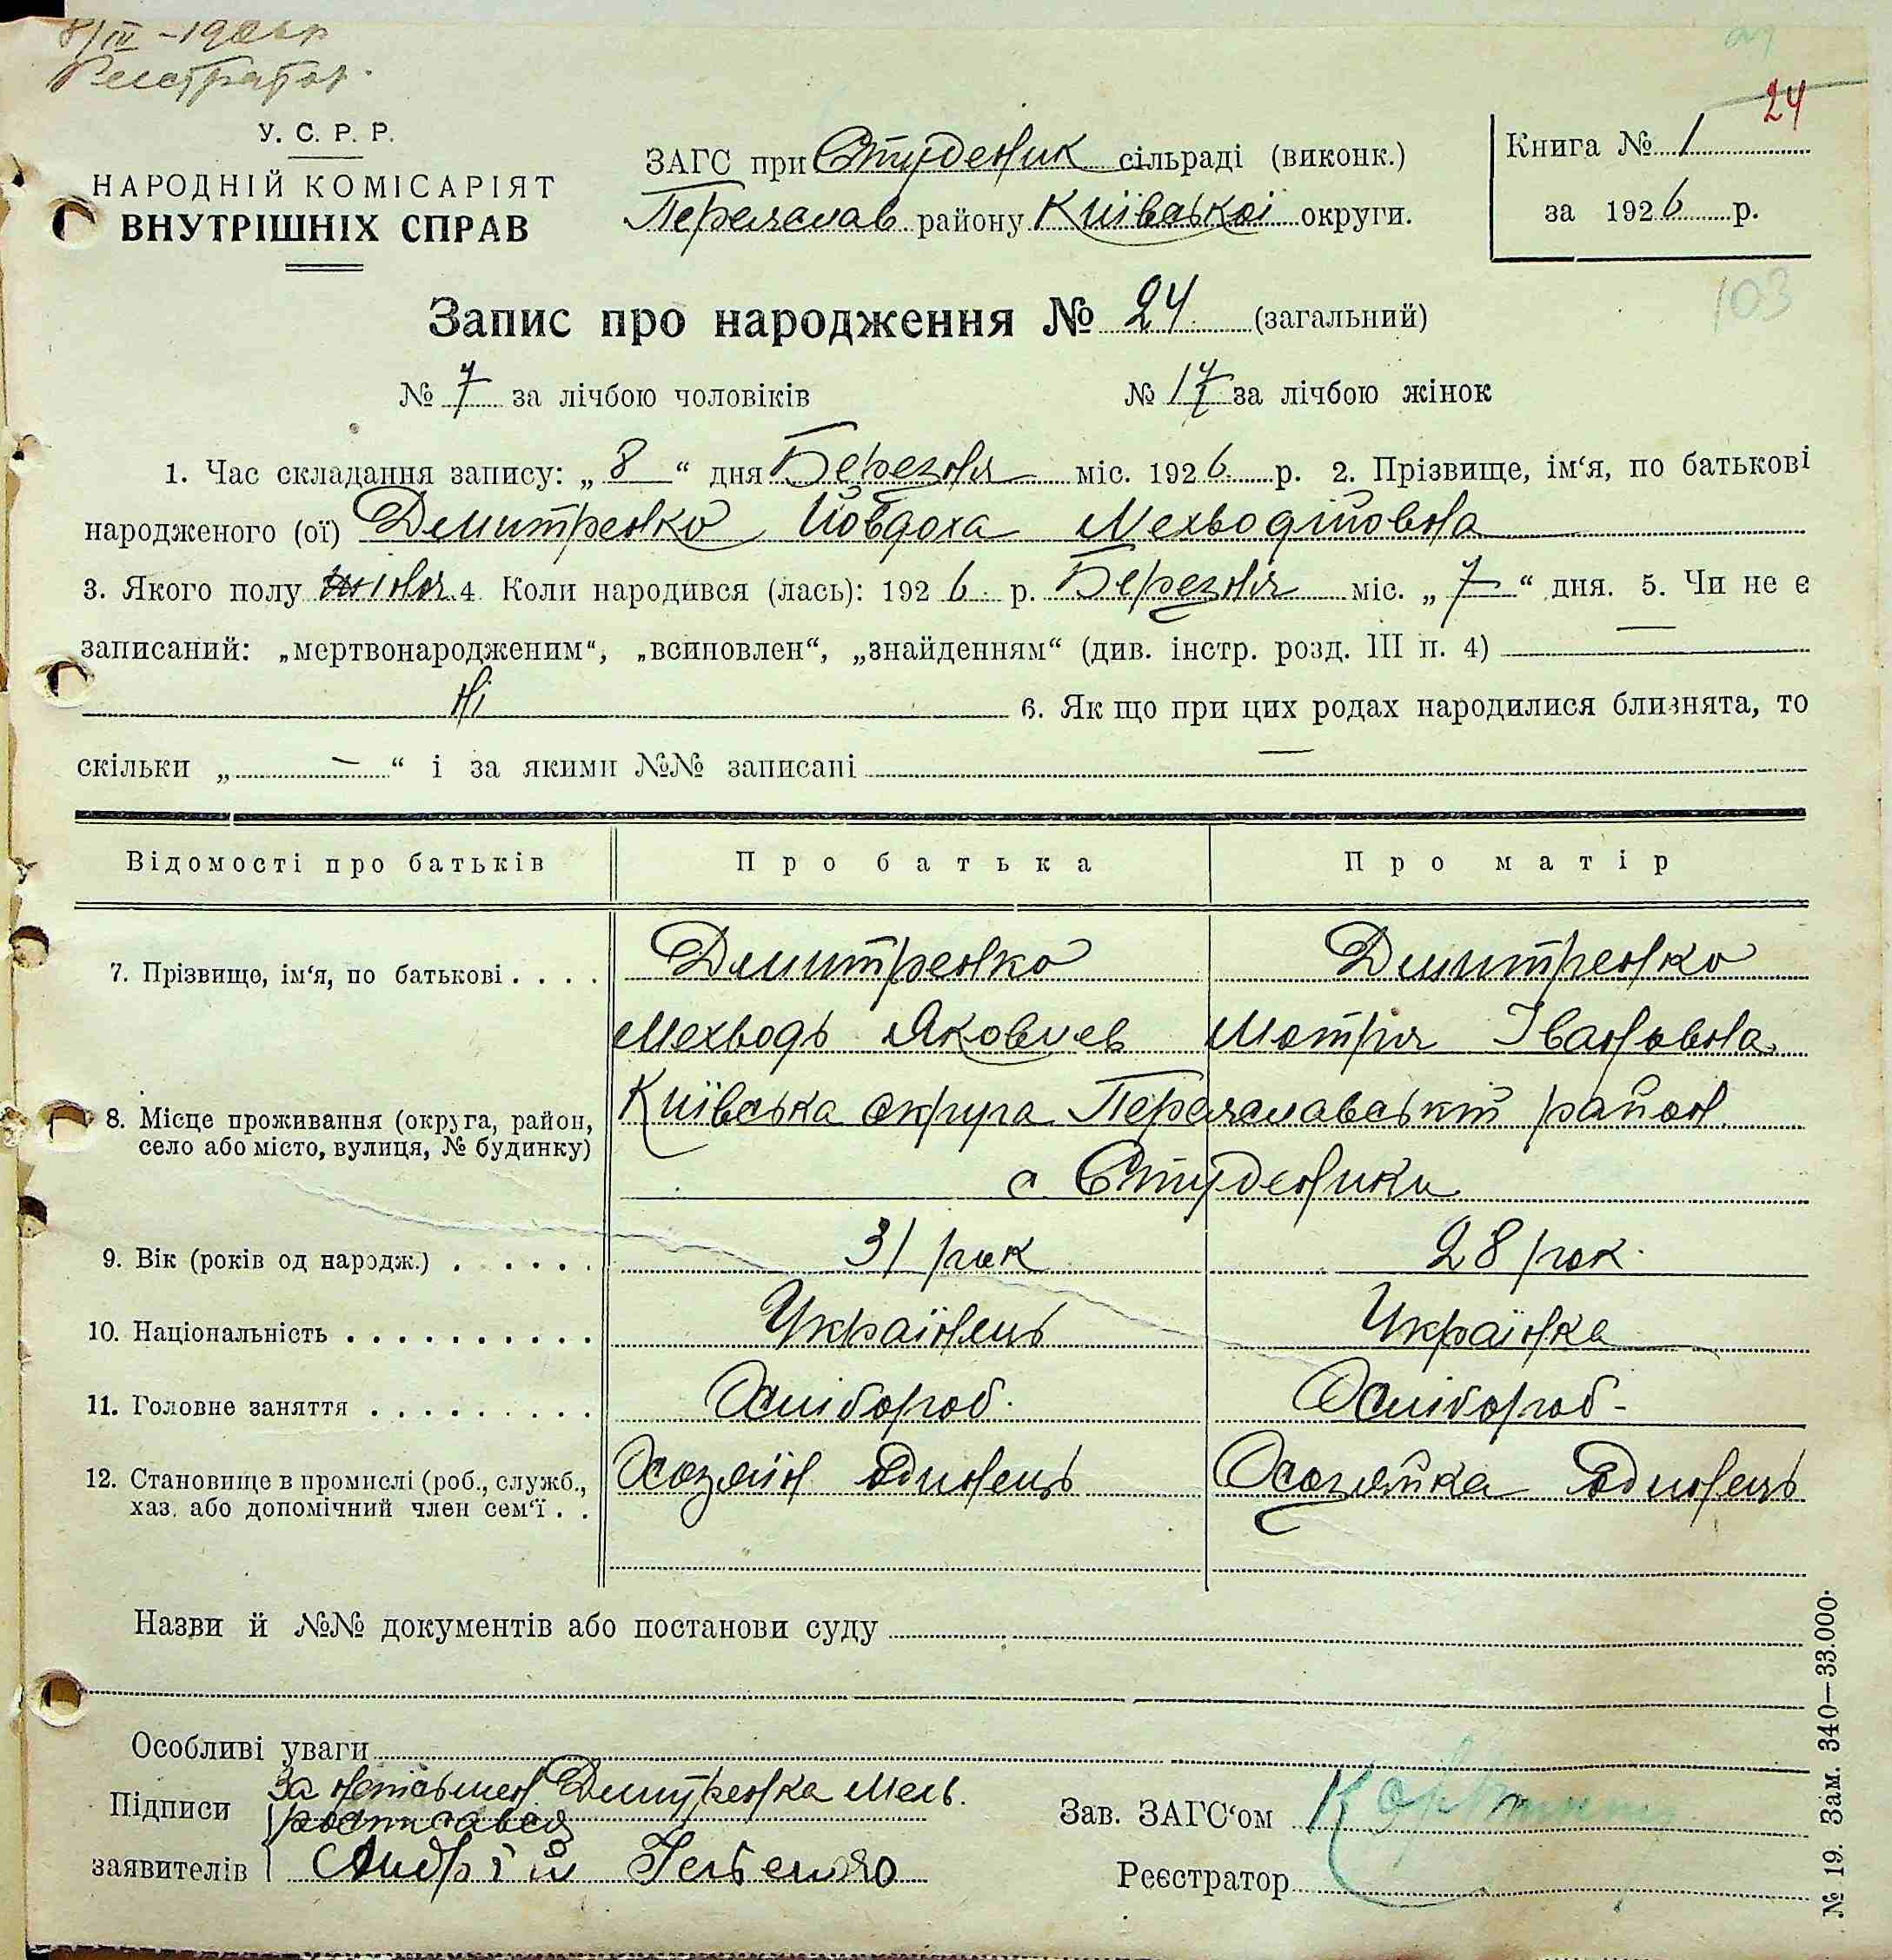 8/III – 1926 р
Реєстратор.
24
У. С. Р. Р.
НАРОДНІЙ КОМІСАРІЯТ
ВНУТРІШНІХ СПРАВ
ЗАГС при Студеник сільраді (виконк.)
Переяслав району Київської округи.
Книга № 1
за 1926 р.
103
Запис про народження № 24 (загальний)
№ 7 за лічбою чоловіків № 17 за лічбою жінок
1. Час складання запису: „ 8 “ дня Березня міс. 1926 р. 2. Прізвище, ім‘я, по батькові
народженого (ої) Дмитренко Йовдоха Мехводіївна
3. Якого полу жіноч. 4. Коли народився (лась): 1926 р. Березня міс. „ 7 “ дня. 5. Чи не є
записаний: „мертвонародженим“, „всиновлен“, „знайденням“ (див. інстр. розд. III п. 4) —
Ні 6. Як що при цих родах народилися близнята, то
скільки „ — “ і за якими №№ записані —
Відомості про батьків Про батька Про матір
7. Прізвище, ім‘я, по батькові . . . . Дмитренко Дмитренко
Мехводь Яковлев Мотря Івановна
8. Місце проживання (округа, район, Київська округа Переяславський район
село або місто, вулиця, № будинку) с. Студеники
9. Вік (років од народж.) . . . . . . 31 рок 28 рок.
10. Національність . . . . . . . . . . Українець Українка
11. Головне заняття . . . . . . . . . Хлібороб. Хлібороб-
12. Становище в промислі (роб., служб., Хозяїн Одинець Хозяйка Одинець
хаз. або допомічний член сем‘ї . .
Назви й №№ документів або постанови суду
Особливі уваги
Підписи За неписьмен. Дмитренка Мех.
росписався
заявителів Андрій
Зав. ЗАГС‘ом
Реєстратор
№ 19. Зам. 340—33.000.